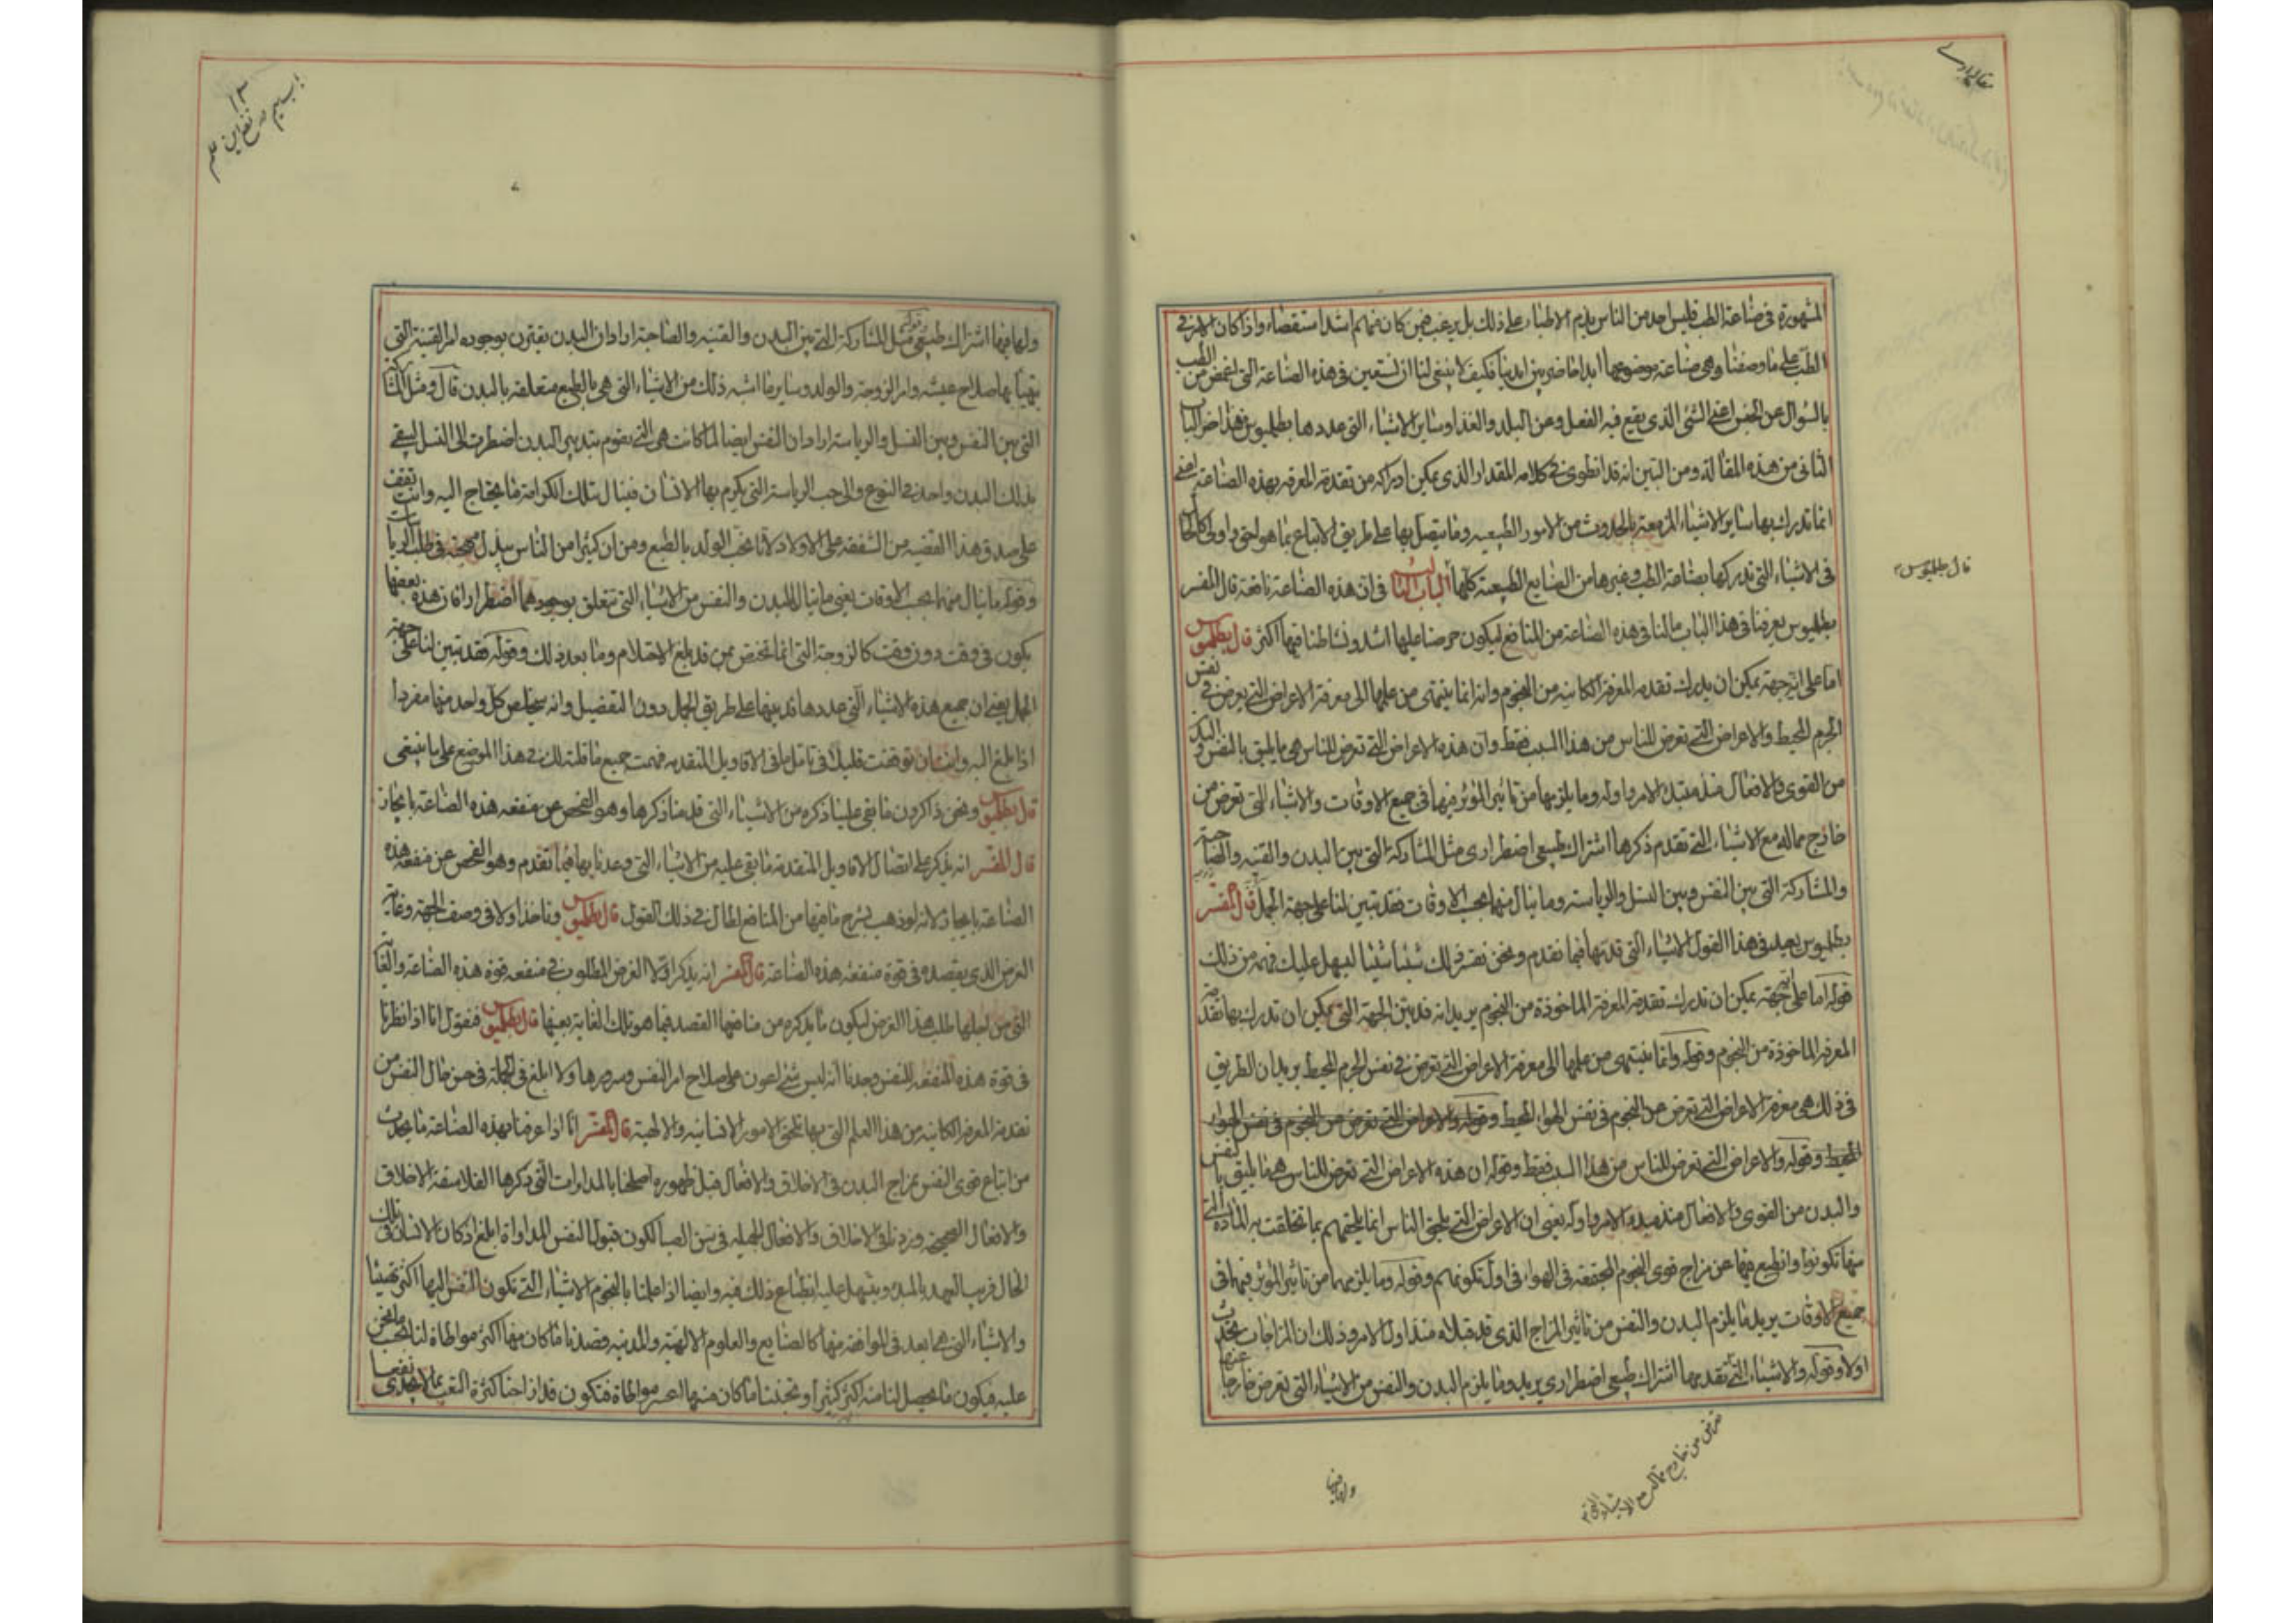 المشهورة في صناعة الطب فليس احد من الناس يذم الاطباء على ذلك بل يرغب فيمن كان منهم اشد استقصاء واذا كان الامر في
الطب على ما وصفنا وهي صناعة موضوعها ابدا حاضر بين ايدينا فكيف لا ينبغي لنا ان نستعين في هذه الصناعة التي اغمض من الطب
بالسؤال عن الجنس اعني الشئ الذي يقع فيه الفعل وعن البلد والغذاء وساير الاشياء التي عددها بطلميوس فهذا اخر الباب
الثاني من هذه المقالة ومن البين انه قد انطوى في كلامه المقدار الذي يمكن ادراكه من تقدمة المعرفه بهذه الصناعة اعني
انما ندرك بها ساير الاشياء المزمعة بالحدوث من الامور الطبيعيه وما يتصل بها على طريق الاتباع بما هو احق واولى كالحال
في الاشياء التي ندركها بصناعة الطب وغيرها من الصنايع الطبيعية كلها الباب الثالث في ان هذه الصناعة نافعة قال المفسر
بطلميوس يعرفنا في هذا الباب مالنا في هذه الصناعة من المنافع ليكون حرصنا عليها اشد ونشاطنا فيها اكثر قال بطلميوس
اما على اية جهة يمكن ان يدرك تقدمه المعرفه الكاينه من النجوم وانه انما ينتهى من علمها الى معرفة الاعراض التي يعرض في نفس
الجرم المحيط والاعراض التي تعرض للناس من هذا السبب فقط وان هذه الاعراض التي تعرض للناس هي ما يليق بالنفس والبدن
من القوى والافعال منذ مبتدا الامر واوله وما يلزمها من تاثير المؤثر فيها في جميع الاوقات والاشياء التي تعرض من
خارج مما له مع الاشياء التي تقدم ذكرها اشتراك طبيعي اضطراري مثل المشاركة التي بين البدن والقنيه والصاحبة
والمشاركة التي بين النفس وبين النسل والرياسة وما ينال منهما بحسب الاوقات فقد تبين لنا على جهة الجمل قال المفسر
بطلميوس يعيد في هذا القول الاشياء التي قدمها فيما تقدم ونحن نفسر ذلك شيئا شيئا ليسهل عليك فهمه من ذلك
قوله اما على اية جهة يمكن ان تدرك تقدمة المعرفة الماخوذة من النجوم يريد انه قد بين الجهة التي يمكن ان تدرك بها تقدمة
المعرفة الماخوذة من النجوم وقوله وانما ينتهى من علمها الى معرفة الاعراض التي تعرض في نفس الجرم المحيط يريد ان الطريق
في ذلك هي معرفة الاعراض التي تعرض من النجوم في نفس الهواء المحيط وقوله والاعراض التي تعرض من النجوم في نفس الهواء
المحيط وقوله والاعراض التي تعرض للناس من هذا السبب فقط وقوله ان هذه الاعراض التي تعرض للناس هي ما يليق بالنفس
والبدن من القوى والافعال منذ مبدء الامر واوله يعني ان الاعراض التي تلحق الناس انما يلحقهم بما تخلقت به المادة التي
منها تكونوا وانطبع فيها عن مزاج قوى النجوم المجتمعة في الهواء في اول تكونهم وقوله وما يلزمهما من تاثير المؤثر فيهما في
جميع الاوقات يريد ما يلزم البدن والنفس من تاثير المزاج الذي قد قبلاه منذ اول الامر وذلك ان المزاجات يحدث
اولا وقوله والاشياء التي تقدمها اشتراك طبيعي اضطراري يريد وما يلزم البدن والنفس من الاشياء التي تعرض خارجا عنها
قال بطلميوس
تعرض من خارج مما له مع الاشياء التي
ولها فيها
ولها فيها اشتراك طبيعي مثل المشاركة التي بين البدن والقنيه والصاحبة اراد ان البدن يقترن بوجوده امر القنية التي
يتهيأ بها صلاح عيشه وامر الزوجة والولد وساير ما اشبه ذلك من الاشياء التي هي بالطبع متعلقه بالبدن قال ومثل المشاركة
التي بين النفس وبين النسل والرياسة اراد ان النفس ايضا لما كانت هي التي يقوم بتدبير البدن اضطرت الى النسل ليبقى
بذلك البدن واحد في النوع والى حب الرياسة التي يكرم بها الانسان فينال بتلك الكرامة ما يحتاج اليه وانت تقف
على صدق هذا القضيه من الشفقه على الاولاد لانا نحب الولد بالطبع ومن ان كثيرا من الناس يبذل مهجته في طلب الرياسات
وقوله ما ينال منهما بحسب الاوقات يعني ما ينال البدن والنفس من الاشياء التي تتعلق بوجودهما اضطرارا فان هذه بعضها
يكون في وقت دون وقت كالزوجة التي انما تختص بمن قد بلغ الاحتلام وما بعد ذلك وقوله فقد تبين لنا على جهة
الجمل يعني ان جميع هذه الاشياء التي عددها قد بينها على طريق الجمل دون التفصيل وانه سيخلص كل واحد منها مفردا
اذا بلغ اليه وانت ان توقفت قليلا في تامل ما في الاقاويل المتقدمه فهمت جميع ما قلته لك في هذا الموضع على ما ينبغي
قال بطلميوس ونحن ذاكرون ما بقي علينا ذكره من الاشياء التي قدمنا ذكرها وهو الفحص عن منفعه هذه الصناعة بايجاز
قال المفسر انه يذكر على اتصال الاقاويل المتقدمة ما بقي عليه من الاشياء التي وعدنا بها فيما تقدم وهو الفحص عن منفعه هذه
الصناعة بايجاز لانه لو ذهب يشرح ما فيها من المنافع لطال في ذلك القول قال بطلميوس وناخذ اولا في وصف الجهة وغاية
الغرض الذي يقصده في قوة منفعه هذه الصناعة قال المفسر انه يذكر اولا الغرض المطلوب في منفعه قوة هذه الصناعة والغاية
التي من اجلها طلب هذا الغرض ليكون ما يذكره من منافعها القصد فيما هو تلك الغاية بعينها قال بطلميوس فنقول انا اذا نظرنا
في قوة هذه المنفعه للنفس وجدنا انه ليس شئ اعون على صلاح امر النفس وسرورها ولا ابلغ في الجملة في حسن حال النفس من
تقدمة المعرفه الكاينه من هذا العلم التي بها تلحق الامور الانسانيه والالهية قال المفسر انا اذا عرفنا بهذه الصناعة ما يحدث
من اتباع قوى النفس بمزاج البدن في الاخلاق والافعال قبل ظهوره اصلحنا بالمداراة التي ذكرها الفلاسفة الاخلاق
والافعال الصحيحه وزدنا في الاخلاق والافعال الجميله في سن الصبا لكون قبول النفس للمداواة ابلغ اذ كان الانسان في تلك
الحال قريب العهد بالمبدء ويسهل عليه انطباع ذلك فيه وايضا اذا علمنا بالنجوم الاشياء التي تكون النفس اليها اكثر تهيئا
والاشياء التي هي ابعد في الموافقة منها كالصنايع والعلوم الالهية والمدنيه قصدنا ما كان منها اكثر مواطاة لنا لنحث
عليه فيكون ما يحصل لنا منه كثيرا وتجنبنا ما كان منها اعسر مواطاة فنكون قد ازاحنا كثرة التعب بما لا يجدي نفعا